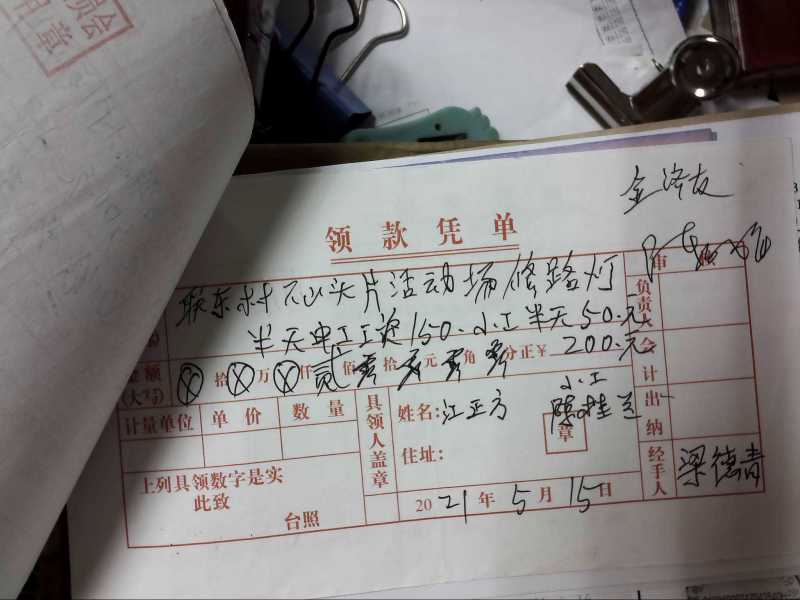 员会
章
金泽友
领款凭单
审
联东村石山头片活动场修路灯
半天电工工资150.小工半天50.元
负责人
金额
(大写)
⊗拾⊗万⊗仟贰佰零拾零元零角零分正¥200.元
会计
计量单位 单价 数量
具领人盖章
姓名:江正方
小工
陈桂兰
章
出纳
住址:
上列具领数字是实
此致
台照
经手人
梁德青
2021年5月15日